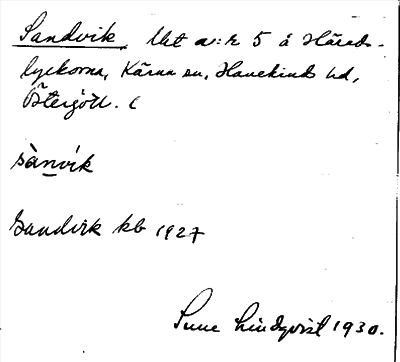 Sandvik, Utt a: r 5 å Härads-
lyckorna, Kärna sn, Hanekinds hd,
Östergötl. (
sànvik
Sandvik kb 1927
Sune Lindqvist 1930.